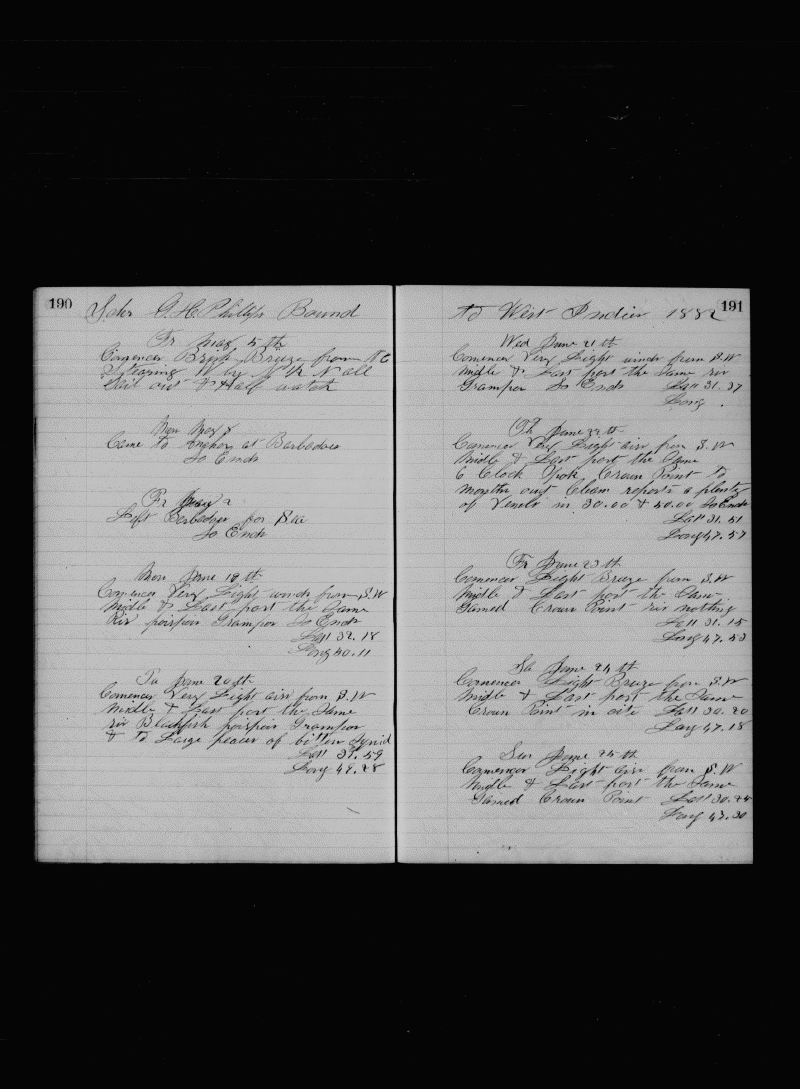 190
Schr G. H. Phillips Bound
Fr May 5 th
Comences Brisk Breeze from N E
Stearing W by N 1/2 N all
Sail out & Half watch
Mon May 8
Came to Anchor at Barbadoes
So Ends
Fr May
Left Barbadoes for Sea
So Ends
Mon June 19 th
Comences Very Light winds from S. W
Midle & Last part the Same
Ris porpois Grampor So Ends
Latt 32. 18
Long 50. 11
Tu June 20 th
Comences Very Light airs from S. W
Midle & Last part the Same
ris Blackfish porpois Grampor
& to Large peaces of bitten Squid
Latt 31. 59
Long 49. 28
191
to West Indies 1882
Wed June 21 th
Comences Very Light winds from S. W
Midle & Last part the Same ris
Grampor So Ends Latt 31. 37
Long .
Th June 22 th
Comences Very Light airs from S. W
Midle & Last part the Same
6 Clock Spok Crown Point to
months out Clean reports a plenty
of Vesels in 30.00 & 50.00 So Ends
Latt 31. 51
Long 47. 57
Fr June 23 th
Comences Light Breeze from S. W
Midle & Last part the Same
Gamed Crown Point ris nothing
Latt 31. 15
Long 47. 53
Sa June 24 th
Comences Light Breeze from S. W
Midle & Last part the Same
Crown Point in cite Latt 30. 20
Long 47. 18
Sun June 25 th
Comences Light airs from S. W
Midle & Last part the Same
Gamed Crown Point Latt 30. 25
Long 47. 30